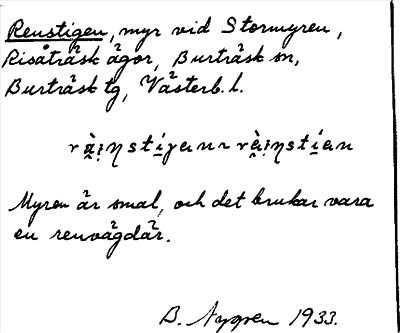 Renstigen, myr vid Stormyren,
Risåträsk ägor, Burträsk sn,
Burträsk tg, Västerb. l.
Myren är smal, och det brukar vara
en renvåg där.
B. Nygren 1933.